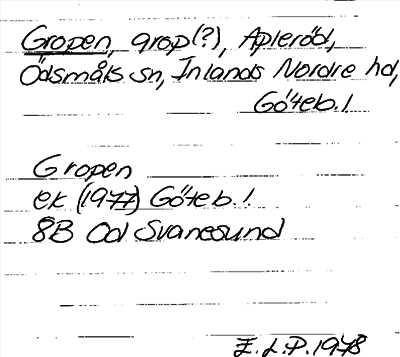 Gropen, grop(?), Apleröd,
Ödsmåls sn, Inlands Nordre hd,
Göteb. l
Gropen
ek (1977) Göteb. l
8B Od Svanesund
E.L.P. 1978